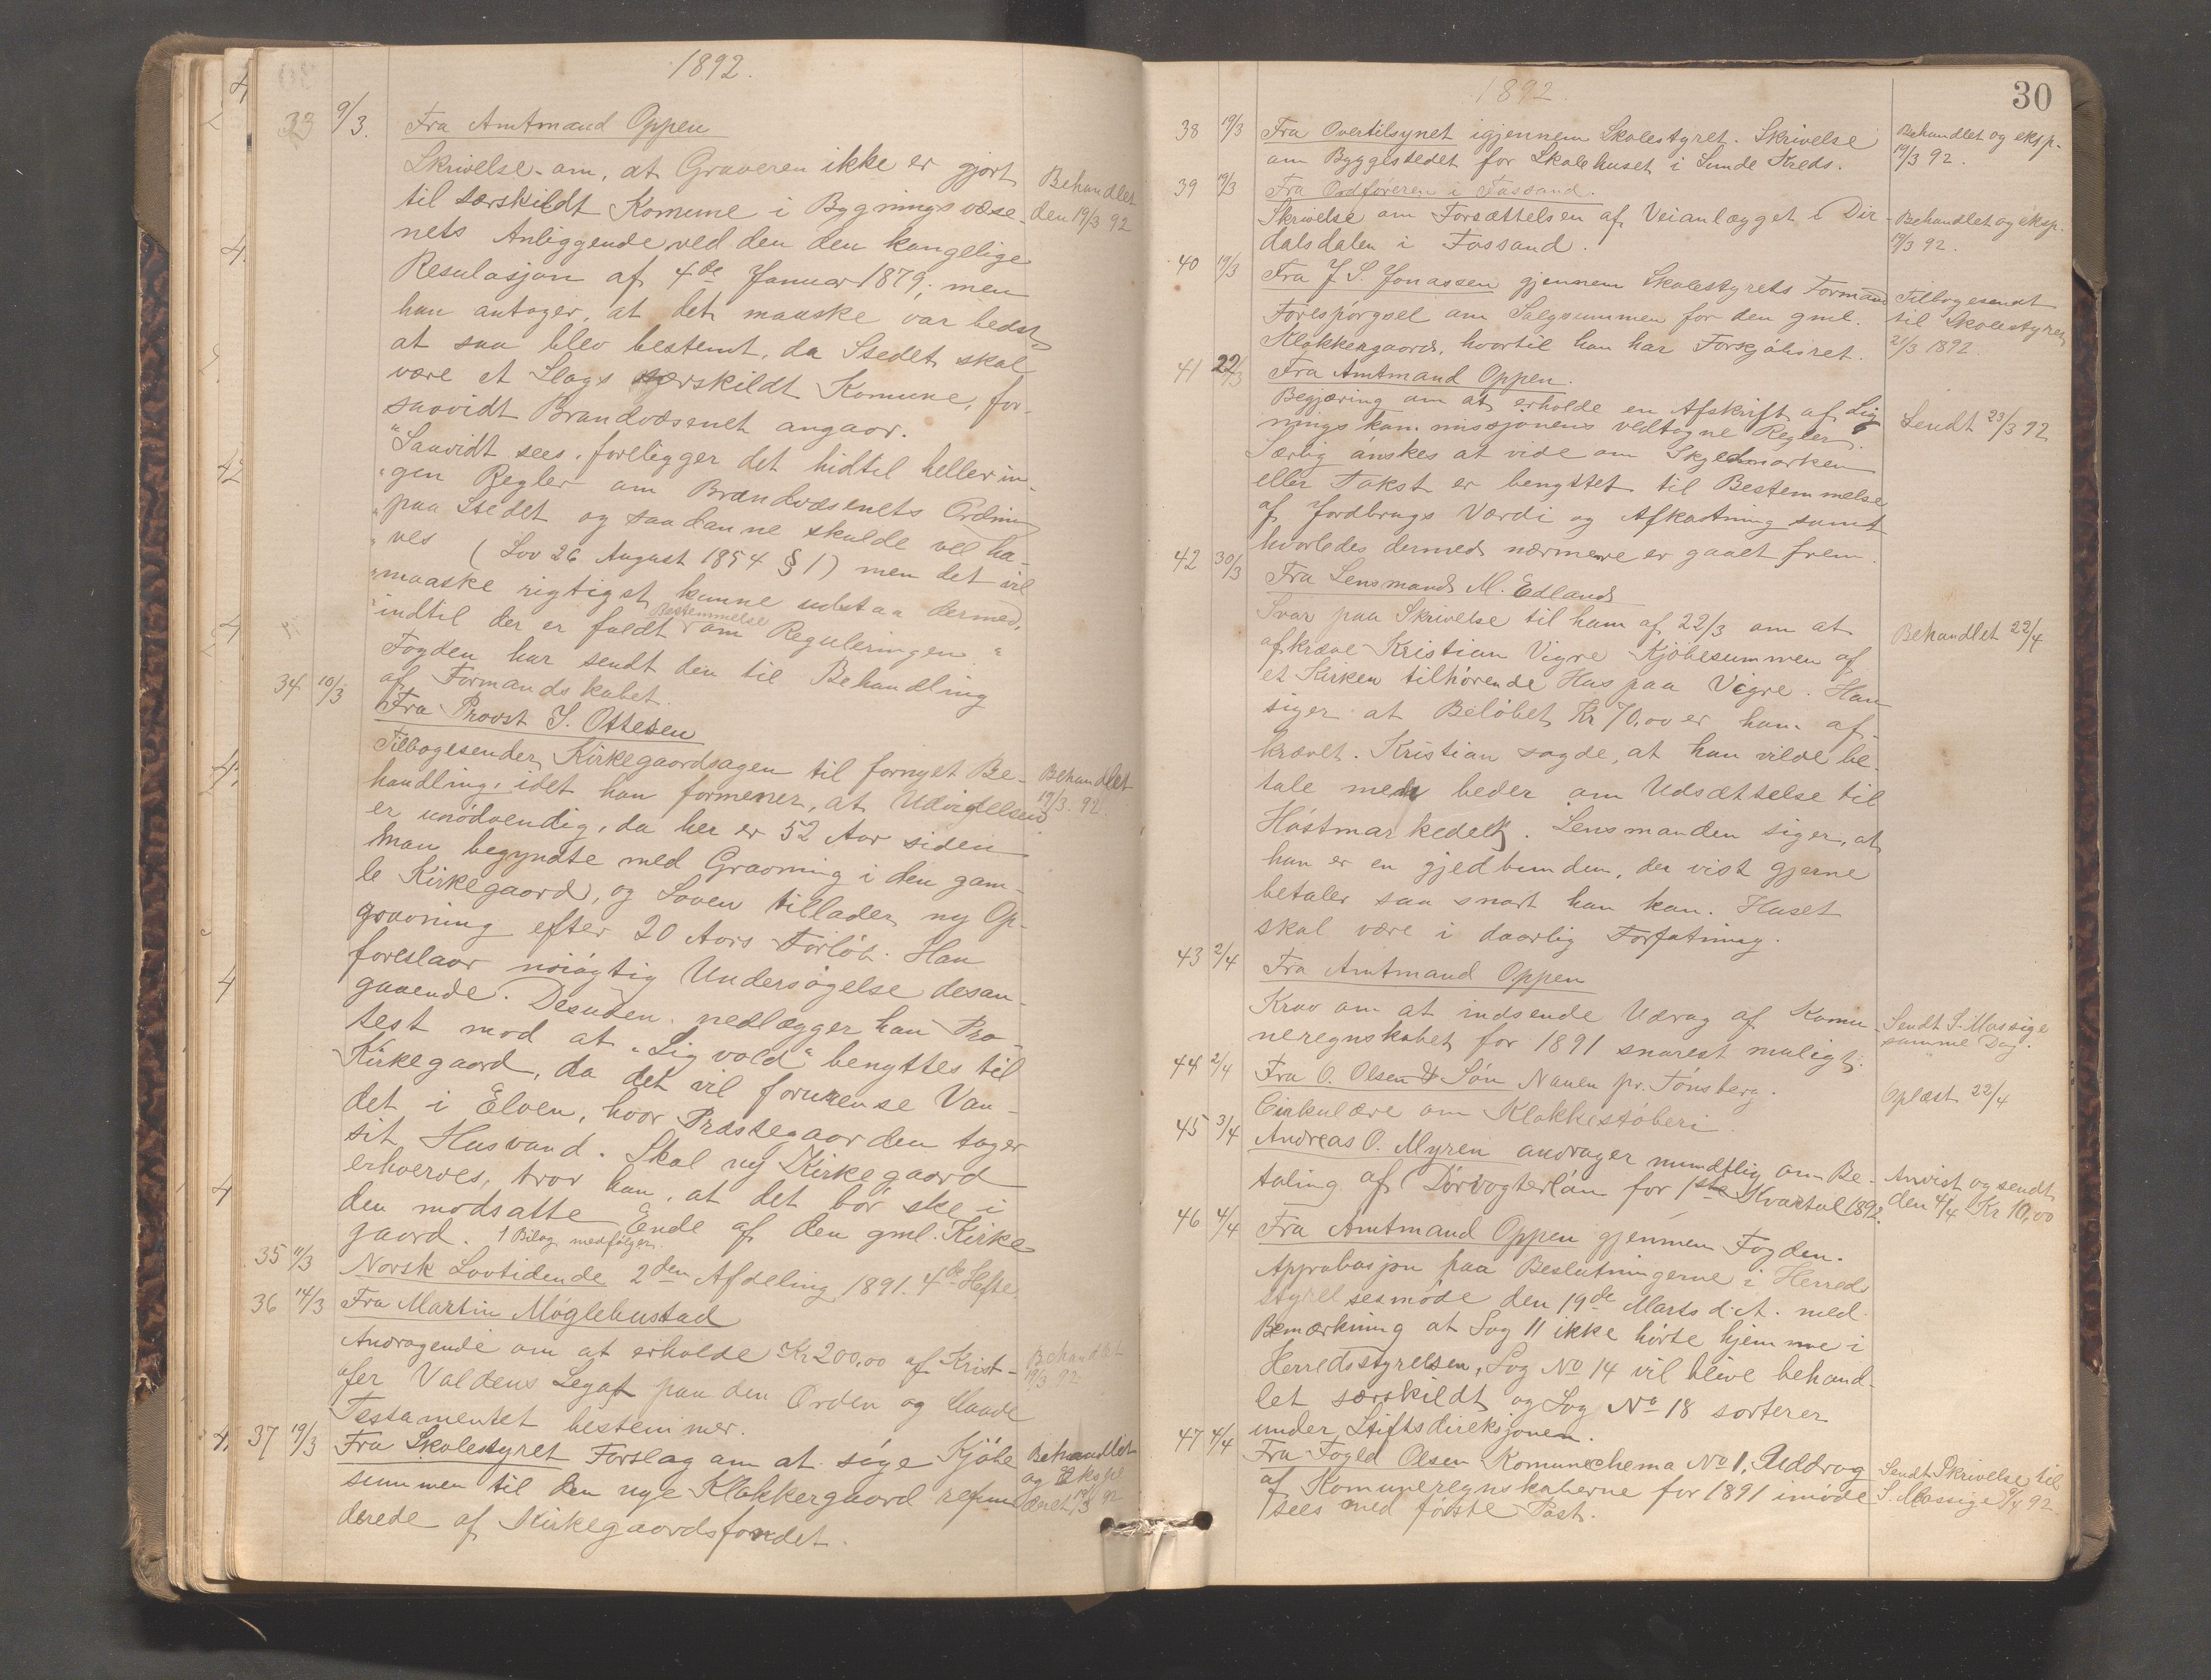 1892.
33 9/3. Fra Amtmand Oppen
Skrivelse om, at Graveren ikke er gjort
til særskildt Komune i Bygningsvæse-
nets Anliggende ved den den kongelige
Resulasjon af 4de Januar 1879; men
han antager, at det maaske var bedst,
at saa blev bestemt, da Stedet skal
være et Slags særskildt Komune, for-
saavidt Brandvæsenet angaar.
"Saavidt sees, foreligger det hidtil heller in-
"gen Regler om Brandvæsenets Ordning
"paa Stedet og saadanne skulde vel ha-
"ves (Lov 26 August 1854 § 1) men det vil
"maaske rigtigst kunne udstaa dermed,
"indtil der er faldt Bestemmelse om Reguleringen."
Fogden har sendt den til Behandling
af Formandskabet.
Behandlet
den 19/3 92
34 10/3 Fra Provst S. Ottesen
Tilbagesender Kirkegaardsagen til fornyet Be-
handling, idet han formener, at Udvidelsen
er unödvendig, da her er 52 Aar siden
man begyndte med Gravning i den gam-
le Kirkegaard, og Loven tillader ny Op-
gravning efter 20 Aars Forløb. Han
foreslaar nöiagtig Undersøgelse desan-
gaaende. Desuden nedlægger han Pro-
test mod at "Ligvold" benyttes til
Kirkegaard, da det vil forurense Van-
det i Elven, hvor Præstegaarden tager
sit Husvand. Skal ny Kirkegaard
erhverves, tror han, at det bör ske i
den modsatte Ende af den gml. Kirke-
gaard. 1 Bilag medfølger.
Behandlet
19/3. 92
35 11/3 Norsk Lovtidende 2den Afdeling 1891. 4de Hefte.
36 14/3 Fra Martin Møglebustad
Andragende om at erholde Kr 200,00 af Krist-
ofer Valdens Legat paa den Orden og Maade
Testamentet bestemmer.
Behandlet
19/3 92
37 19/3 Fra Skolestyret Forslag om at söge Kjöbe
summen til den nye Klokkergaard refun
derede af Kirkegaardsfondet.
Behandlet
og ekspe
deret 19/3 92
30
1892.
38 19/3 Fra Overtilsynet igjennem Skolestyret. Skrivelse
om Byggestedet for Skolehuset i Sunde Kreds.
Behandlet og eksp.
19/3 92.
39 19/3 Fra Ordføreren i Fossand.
Skrivelse om Forsættelsen af Veianlægget i Dir-
dalsdalen i Fossand.
Behandlet og eksp.
19/3 92.
40 19/3 Fra J. S. Jonassen gjennem Skolestyrets Formand
Forespörgsel om Salgsummen for den gml.
Klokkergaard, hvortil han har Forskjöbsret.
Tilbagesendt
til Skolestyret
21/3 1892.
41 22/3 Fra Amtmand Oppen.
Begjæring om at erholde en Afskrift af Lig
ningskommissjonens vedtagne Regler.
Særlig önskes at vide om Skyldmarken
eller Takst er benyttet til Bestemmelse
af Jordbrugs Værdi og Afkastning samt
hvorledes dermed nærmere er gaaet frem.
Sendt 23/3 92
42 30/3 Fra Lensmand M. Edland
Svar paa Skrivelse til ham af 22/3 om at
afkræve Kristian Vigre Kjöbesummen af
et Kirken tilhörende Hus paa Vigre. Han
siger at Belöbet Kr 70,00 er ham af-
krævet. Kristian sagde, at han vilde be-
tale men beder om Udsættelse til
Höstmarkedet. Lensmanden siger, at
han er en gjedbunden, der vist gjerne
betaler saa snart han kan. Huset
skal være i daarlig Forfatning.
Behandlet 22/4
43 2/4 Fra Amtmand Oppen
Krav om at indsende Udrag af Komu-
neregnskabet for 1891 snarest muligt.
Sendt S. Massige
samme Dag.
44 2/4 Fra O. Olsen & Sön Nauen pr. Tönsberg.
Cirkulære om Klokkestöberi
Oplæst 22/4
45 3/4 Andreas O. Myren andrager mundtlig om Be-
taling af Dörvogterlön for 1ste Kvartal 1892.
Anvist og sendt
den 4/4 Kr 10,00
46 4/4 Fra Amtmand Oppen gjennem Fogden.
Approbasjon paa Beslutningerne i Herred
styrelsesmöde den 19de Marts d.A. med
Bemærkning at Sag 11 ikke hörte hjemme i
Herredsstyrelsen, Sag No 14 vil blive behand-
let særskildt og Sag No 18 sorterer
under Stiftsdireksjonen.
47 4/4 Fra Foged Olsen Komuneschema No 1, Uddrag
af Komuneregnskaberne for 1891 imöde
sees med förste Post.
Sendt Skrivelse til
S. Massige 9/4 92.